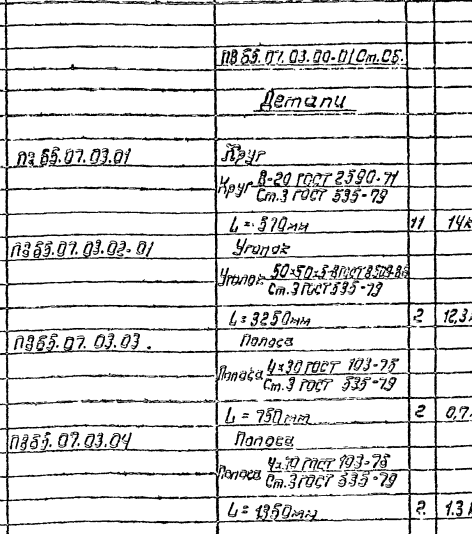 ПВ 65.07.03.00-01 Ст.Сб.
Детали
ПВ 65.07.03.01 Круг
Круг В-20 ГОСТ 2590-71
Ст.3 ГОСТ 535-79
L = 570мм 11 14к
ПВ65.07.03.02-01 Уголок
Уголок 50×50×5-В ГОСТ 8509-86
Ст.3 ГОСТ 535-79
L = 3250мм 2 12,3
ПВ65.07.03.03. Полоса
Полоса 4×30 ГОСТ 103-76
Ст.3 ГОСТ 535-79
L = 750мм 2 0,7
ПВ65.07.03.04 Полоса
Полоса ГОСТ 103-76
Ст.3 ГОСТ 535-79
L = 1350мм 2 1.3